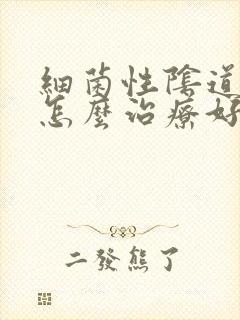 細菌性陰道
怎麼治療好
二發熊了